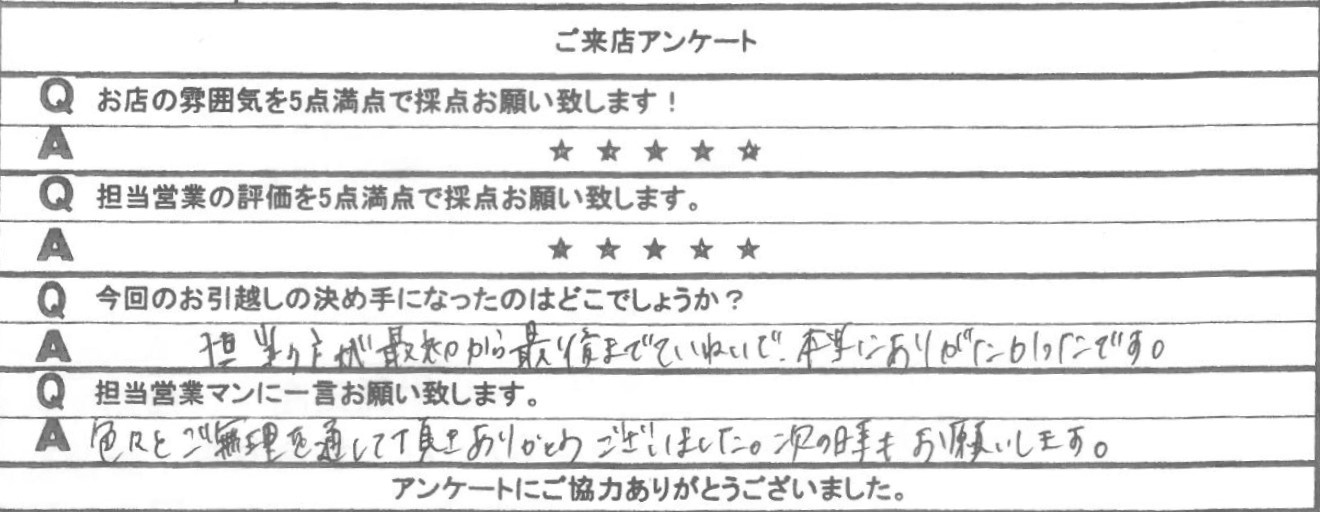 ご来店アンケート
Q お店の雰囲気を5点満点で採点お願い致します！
A ★ ★ ★ ★ ★
Q 担当営業の評価を5点満点で採点お願い致します。
A ★ ★ ★ ★ ★
Q 今回のお引越しの決め手になったのはどこでしょうか？
A 担当の方が最初から最後までていねいで、本当にありがたかったです。
Q 担当営業マンに一言お願い致します。
A 色々とご無理を通して頂きありがとうございました。次の時もお願いします。
アンケートにご協力ありがとうございました。